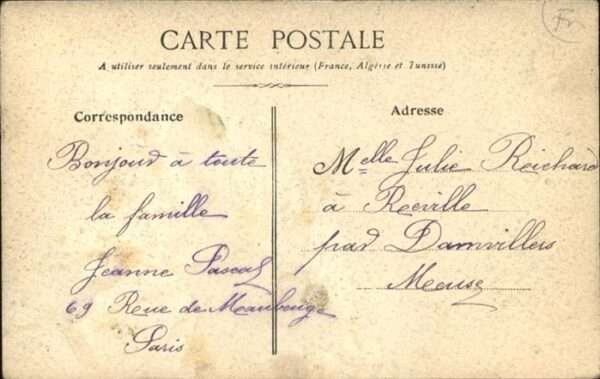 Fr
CARTE POSTALE
A utiliser seulement dans le service intérieur (France, Algérie et Tunisie)
Correspondance
Bonjour à toute
la famille
Jeanne Pascal
69 Rue de Maubeuge
Paris
Adresse
Melle Julie Reichard
à Reville
par Damvillers
Meuse